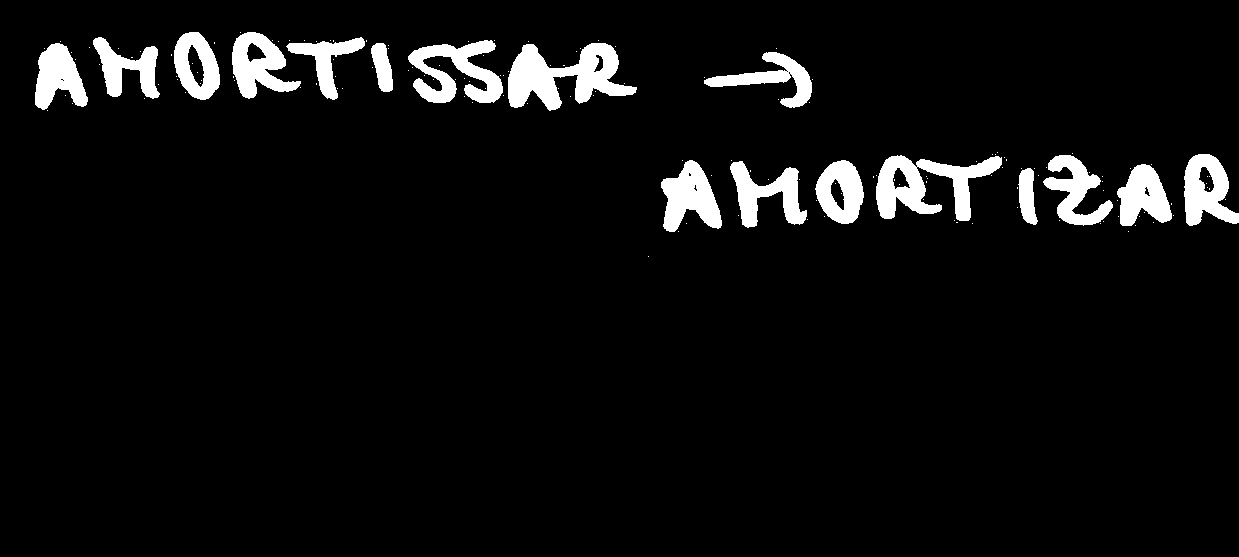 AMORTISSAR →
AMORTIZAR